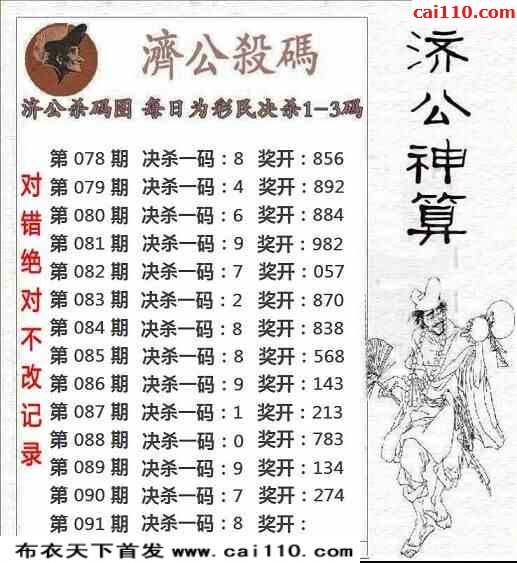 cai110.com
濟公殺碼
济公杀码图 每日为彩民决杀1-3码
济公神算
对错绝对不改记录
第 078 期 决杀一码：8 奖开：856
第 079 期 决杀一码：4 奖开：892
第 080 期 决杀一码：6 奖开：884
第 081 期 决杀一码：9 奖开：982
第 082 期 决杀一码：7 奖开：057
第 083 期 决杀一码：2 奖开：870
第 084 期 决杀一码：8 奖开：838
第 085 期 决杀一码：8 奖开：568
第 086 期 决杀一码：9 奖开：143
第 087 期 决杀一码：1 奖开：213
第 088 期 决杀一码：0 奖开：783
第 089 期 决杀一码：9 奖开：134
第 090 期 决杀一码：7 奖开：274
第 091 期 决杀一码：8 奖开：
布衣天下首发 www.cai110.com